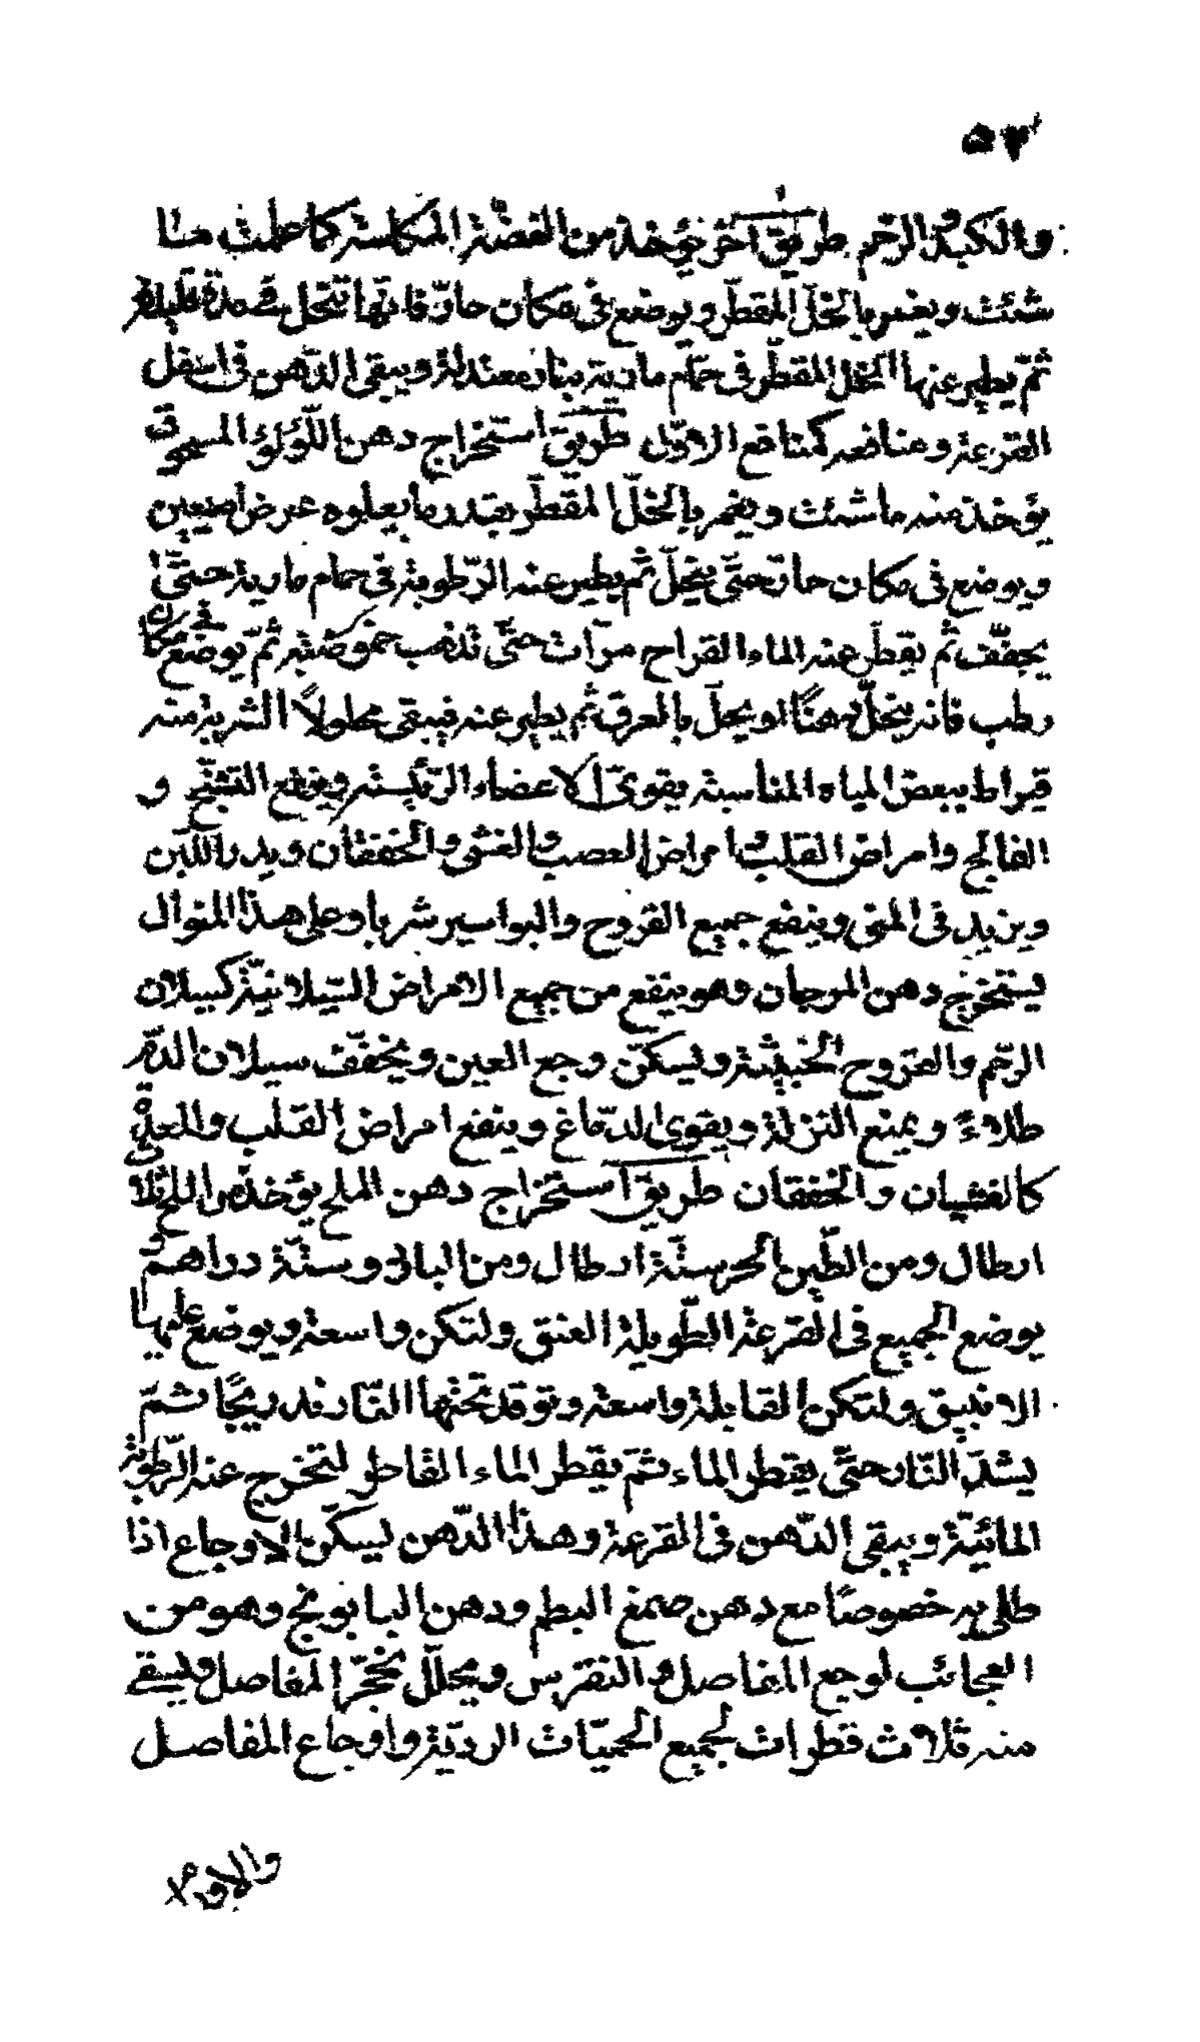 ٥٣
والكبد والرحم طريق آخر يؤخذ من الفضّة المكلسة كما علمت ما
شئت ويغمر بالخلّ المقطّر ويوضع فى مكان حارّ فانّها تنحل فى مدة قليلة
ثمّ يطير عنها الخل المقطّر فى حمّام مارية بنار معتدلة ويبقى الدّهن فى اسفل
القرعة ومنافعه كمنافع الاوّل طريق استخراج دهن اللّؤلؤ المسحوق
يؤخذ منه ما شئت ويغمر بالخلّ المقّطّر بقدر ما يعلوه عرض اصبعين
ويوضع فى مكان حارّ حتّى ينحلّ ثم يطير عنه الرّطوبة فى حمام مارية حتّى
يجفّف ثم يقطّر عنه الماء القراح مرّات حتّى تذهب حموضته ثمّ يوضع فى مكان
رطب فانه ينحلّ دهنًا او يحلّ بالعرق ثم يطير عنه فيبقى محلولاً الشربة منه
قيراط ببعض المياه المناسبة يقوىّ الاعضاء الرّئيسة وينفع التشنّج و
الفالج وامراض القلب وامراض العصب والغشى والخفقان ويدر اللّبن
ويزيد فى المنى وينفع جميع القروح والبواسير شربا وعلى هذا المنوال
يستخرج دهن المرجان وهو ينفع من جميع الامراض السّيلانيّة كسيلان
الرّحم والقروح الخبيثة ويسكّن وجع العين ويخفّف سيلان الدّم
طلاءً ويمنع النزلة ويقوى الدّماغ وينفع امراض القلب والمعدة
كالغشيان والخفقان طريق استخراج دهن الملح يؤخذ من الملح ثلاثة
ارطال ومن الطّين الحر ستّة ارطال ومن البارود ستّة دراهم
يوضع الجميع فى القرعة الطّويلة العنق ولتكن واسعة ويوضع عليها
الانبيق ولتكن القابلة واسعة وتوقد تحتها النّار تدريجًا ثمّ
يشدّ النّار حتّى يقطر الماء ثمّ يقطر الماء القاطر لتخرج عنه الرّطوبة
المائيّة ويبقى الدّهن فى القرعة وهذا الدّهن ليسكّن الاوجاع اذا
طلى به خصوصًا مع دهن صمغ البطم ودهن البابونج وهو من
العجائب لوجع المفاصل والنقرس ويحلّل تحجّر المفاصل ويسقى
منه ثلاث قطرات لجميع الحميّات الرديّة واوجاع المفاصل
والاورام